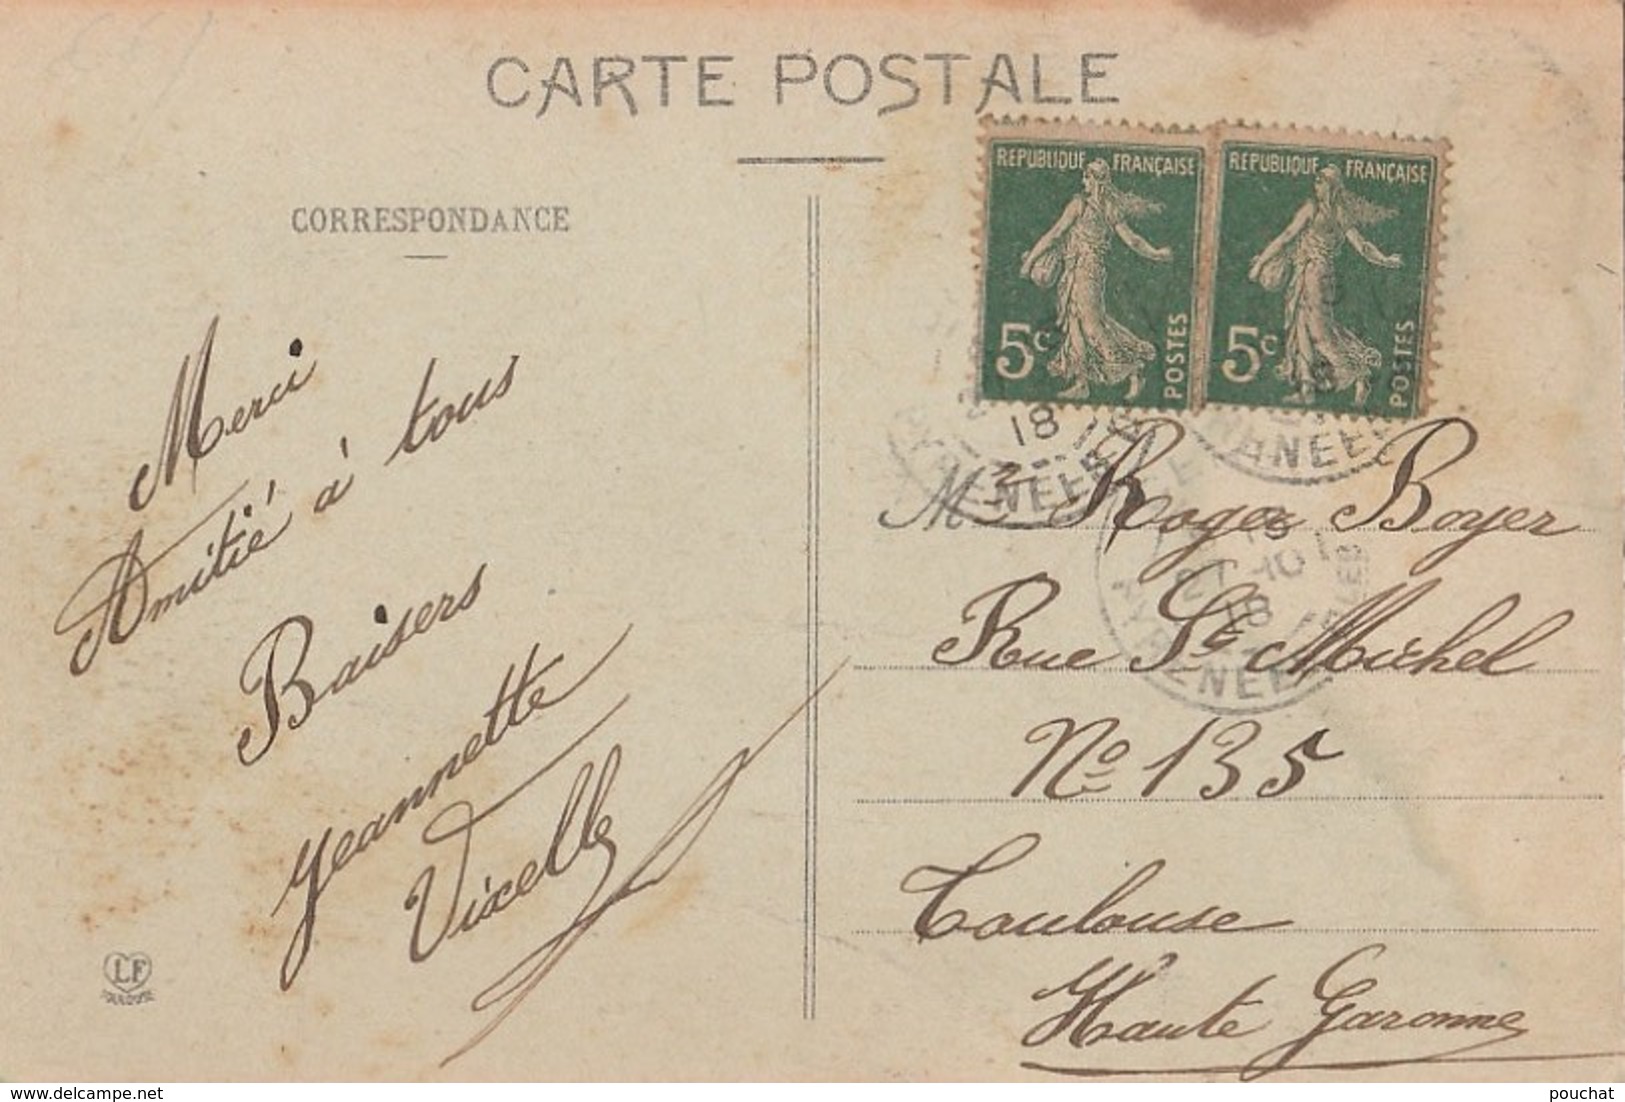 CARTE POSTALE
CORRESPONDANCE
REPUBLIQUE FRANÇAISE
5c
POSTES
REPUBLIQUE FRANÇAISE
5c
POSTES
Merci
Amitié à tous
Baisers
Jeannette
Vixelle
LF
TOULOUSE
18
M. Roger Boyer
Rue St Michel
No 135
Toulouse
Haute Garonne
18
www.delcampe.net
pouchat